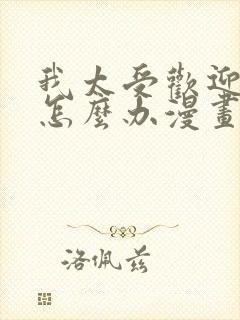 我太受歡迎
怎麼办漫畫
洛佩兹